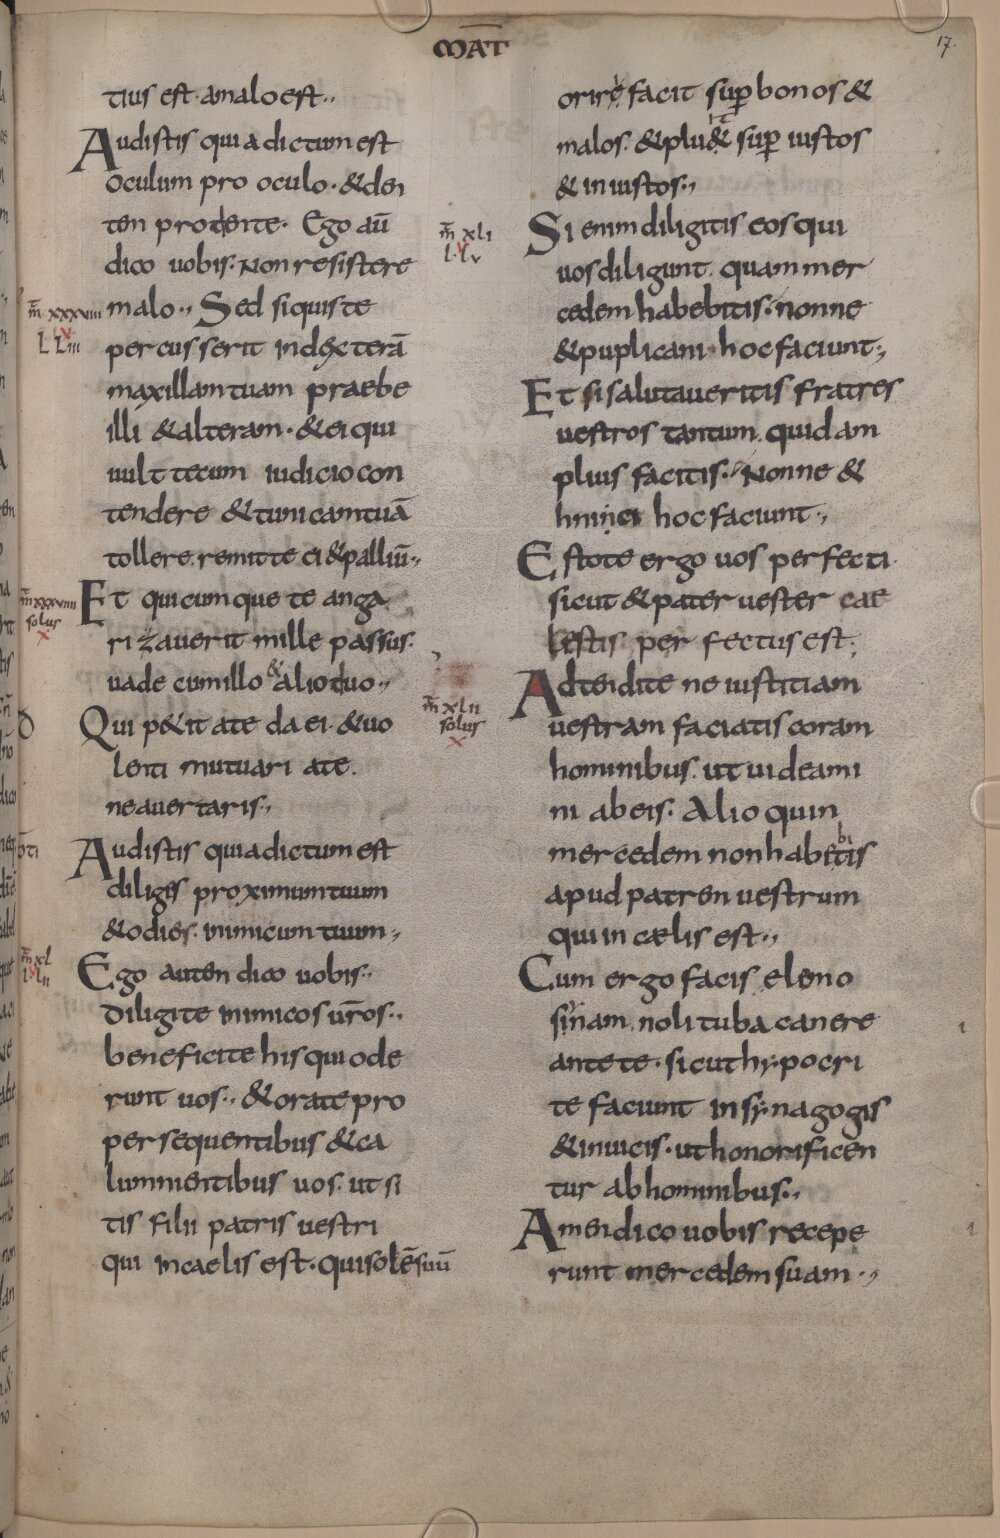 MAT̅
17.
tius est · a malo est ·,,
Audistis quia dictum est
oculum pro oculo · & den
tem pro dente · Ego aū
dico uobis · Non resistere
m̄ xxxviiii
malo ·,, Sed si quis te
l Liii
percusserit in dexterā
maxillam tuam praebe
illi & alteram · & ei qui
uult tecum iudicio con
tendere & tunicam tuā
tollere remitte ei & palliū ·,,
m̄ xxxviiii
Et quicumque te anga
solus
x
rizauerit mille passus ·
uade cum illo & alio duo ·,,
Qui p&it a te da ei · & uo
lenti mutuari a te ·
ne auertaris ·,
Audistis quia dictum est
diliges proximum tuum
& odies · inimicum tuum ·,
m̄ xl
Ego autem dico uobis ·,,
l Lii
Diligite inimicos ūros ·,
benefacite his qui ode
runt uos ·,, & orate pro
persequentibus & ca
lumnientibus uos · ut si
tis filii patris uestri
qui in caelis est · qui solē suū
orire facit sup̄ bonos &
malos · & plu& it sup̄ iustos
& iniustos ·,
m̄ xli
Si enim diligitis eos qui
l · Lv
uos diligunt · quam mer
cedem habebitis · nonne
& puplicani hoc faciunt ·,
Et si salutaueritis fratres
uestros tantum · quid am
plius facitis ·,, Nonne &
hnnici hoc faciunt ·,
Estote ergo uos perfecti
sicut & pater uester cae
lestis perfectus est ·,
m̄ xlii
Adtendite ne iustitiam
solus
x
uestram faciatis coram
hominibus · ut uideami
ni ab eis · Alioquin
bi
mercedem non habetis
apud patrem uestrum
qui in caelis est ·,,
Cum ergo facis elemo
synam noli tuba canere
ante te · sicut hypocri
te faciunt in synagogis
& in uicis · ut honorificen
tur ab hominibus ·,
Amen dico uobis recepe
runt mercedem suam ·,,